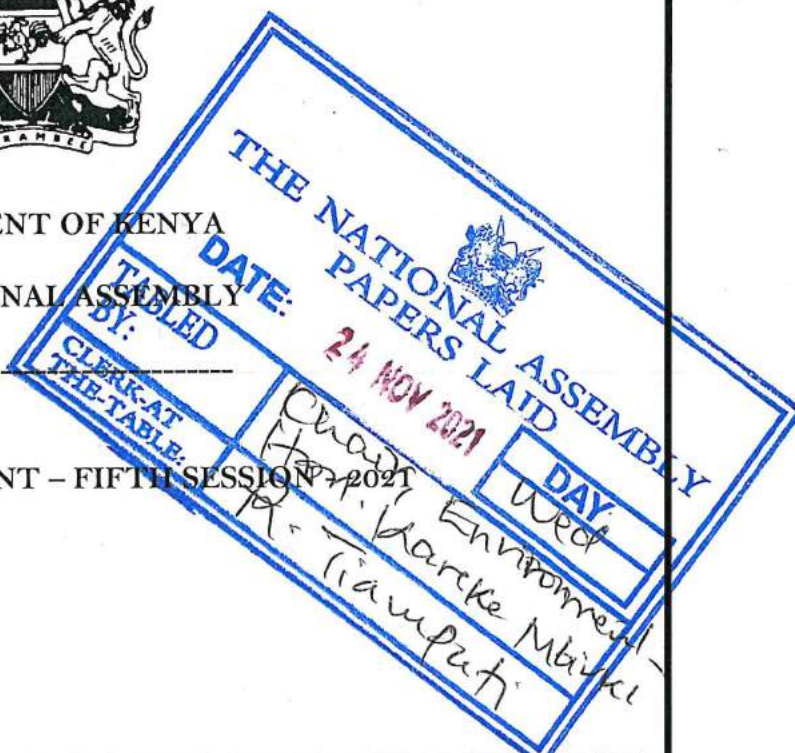 ENT OF KENYA
NAL ASSEMBLY
NT – FIFTH SESSION – 2021
THE NATIONAL ASSEMBLY
PAPERS LAID
DATE:
24 NOV 2021
DAY
Wed
TABLED
BY:
Chair, Environment -
Hon. Kareke Mbiuki
CLERK-AT
THE-TABLE:
R. Tiampati